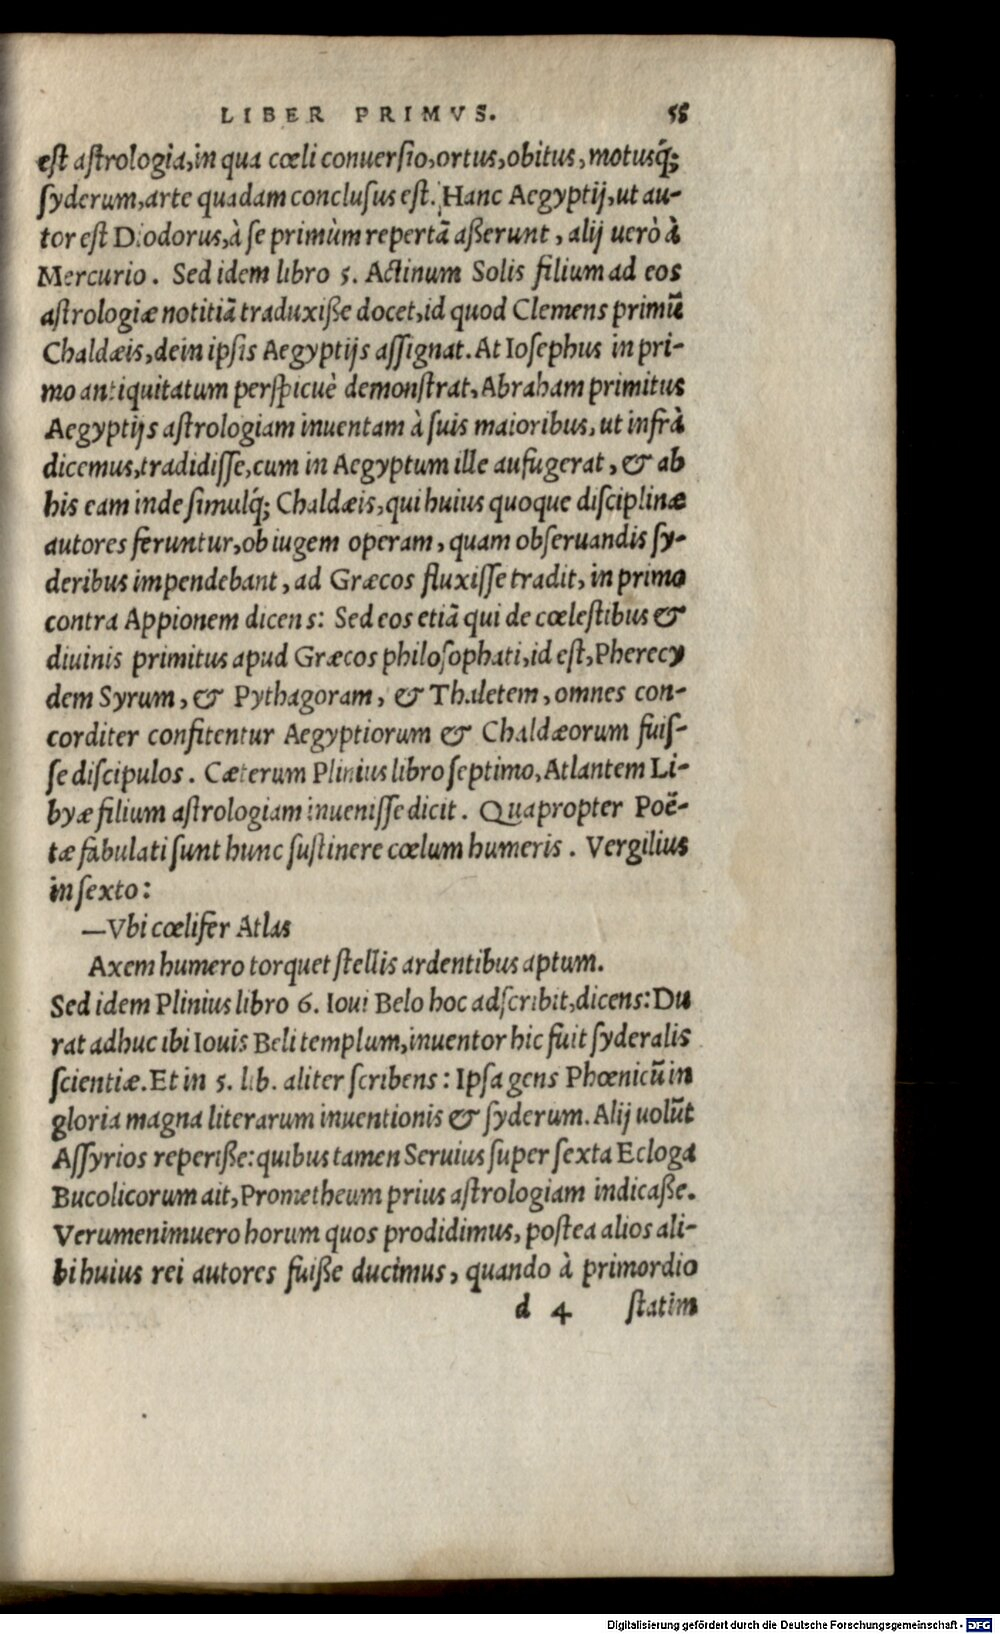 LIBER PRIMVS. 55
est astrologia,in qua cœli conuersio,ortus,obitus,motusq́;
syderum,arte quadam conclusus est. Hanc Aegyptij,ut au-
tor est Diodorus,à se primùm repertā aßerunt, alij uerò à
Mercurio. Sed idem libro 5. Actinum Solis filium ad eos
astrologiæ notitiā traduxiße docet,id quod Clemens primū
Chaldæis,dein ipsis Aegyptijs assignat. At Iosephus in pri-
mo antiquitatum perspicuè demonstrat, Abraham primitus
Aegyptijs astrologiam inuentam à suis maioribus, ut infrà
dicemus,tradidisse,cum in Aegyptum ille aufugerat, & ab
his eam inde simulq́; Chaldæis,qui huius quoque disciplinæ
autores feruntur,ob iugem operam, quam obseruandis sy-
deribus impendebant, ad Græcos fluxisse tradit, in primo
contra Appionem dicens: Sed eos etiā qui de cœlestibus &
diuinis primitus apud Græcos philosophati,id est,Pherecy
dem Syrum, & Pythagoram, & Thaletem, omnes con-
corditer confitentur Aegyptiorum & Chaldæorum fuis-
se discipulos. Cæterum Plinius libro septimo, Atlantem Li-
byæ filium astrologiam inuenisse dicit. Quapropter Poë-
tæ fabulati sunt hunc sustinere cœlum humeris. Vergilius
in sexto:
—Vbi cœlifer Atlas
Axem humero torquet stellis ardentibus aptum.
Sed idem Plinius libro 6. Ioui Belo hoc adscribit,dicens: Du
rat adhuc ibi Iouis Beli templum,inuentor hic fuit syderalis
scientiæ. Et in 5. lib. aliter scribens: Ipsa gens Phœnicū in
gloria magna literarum inuentionis & syderum. Alij uolūt
Assyrios reperiße: quibus tamen Seruius super sexta Ecloga
Bucolicorum ait, Prometheum prius astrologiam indicaße.
Verumenimuero horum quos prodidimus, postea alios ali-
bi huius rei autores fuiße ducimus, quando à primordio
d 4 statim
Digitalisierung gefördert durch die Deutsche Forschungsgemeinschaft - DFG